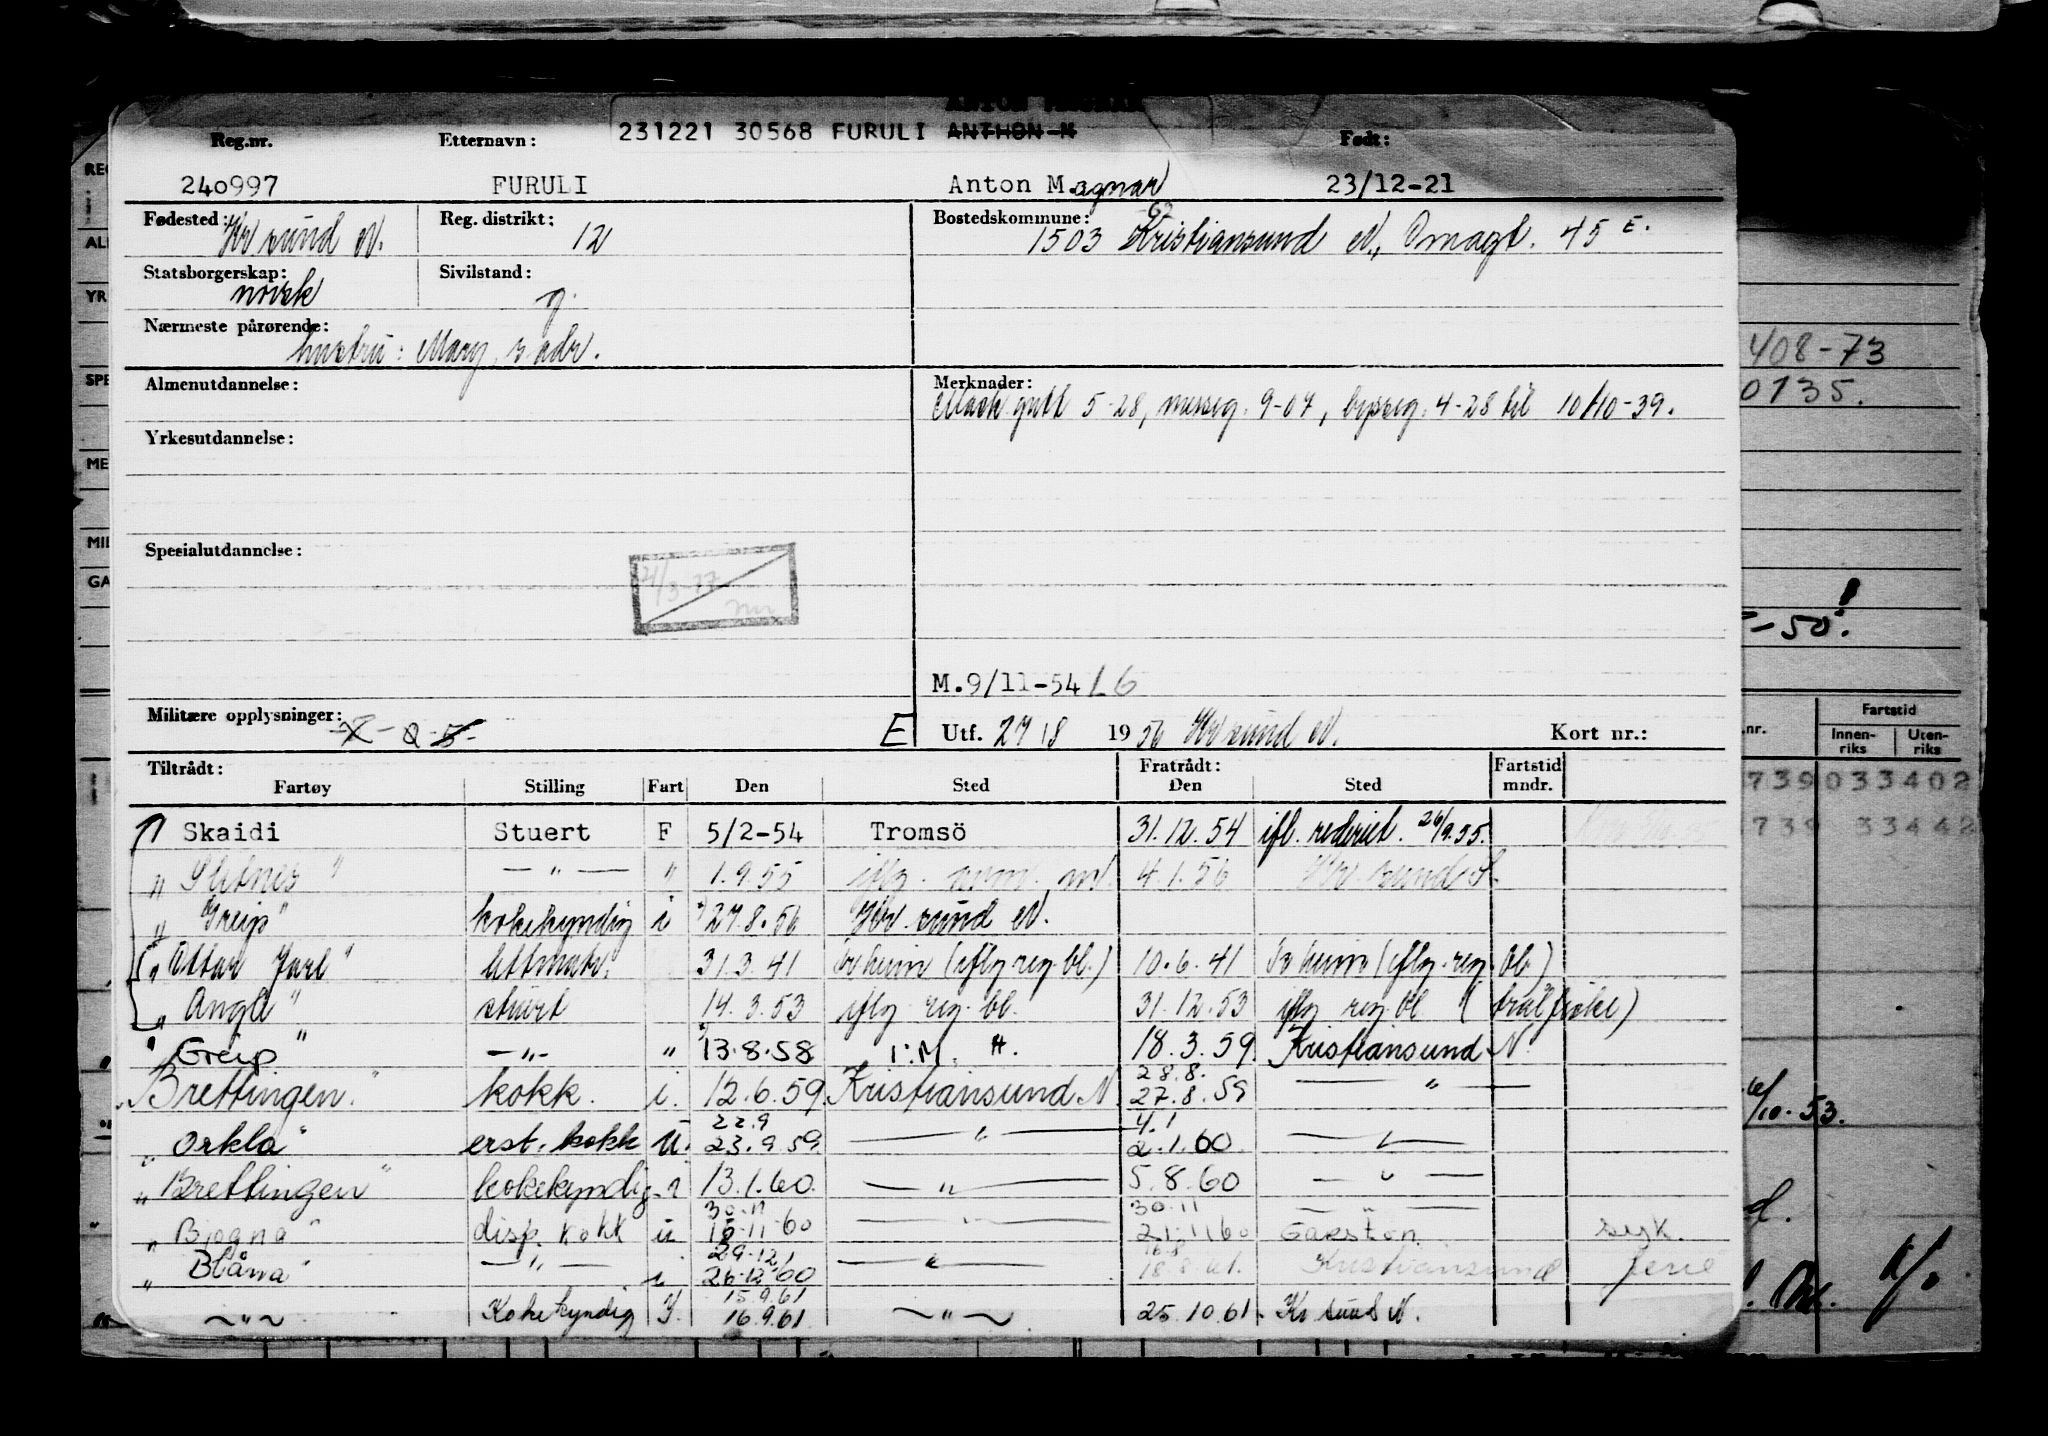 231221 30568 FURULI ANTHON M
Reg.nr. Etternavn: Født:
240997 FURULI Anton Magnar 23/12-21
Fødested: Kr sund N. Reg. distrikt: 12 Bostedskommune: 1503 Kristiansund N, Omagt. 45 E.
Statsborgerskap: norsk Sivilstand: g.
Nærmeste pårørende: hustru: Mary, s. adr.
Almenutdannelse: Merknader: Mask gutt 5-28, messeg. 9-07, byssg. 4-28 til 10/10-39.
Yrkesutdannelse:
Spesialutdannelse:
21/3-77
M.9/11-54 LG
Militære opplysninger: E Utf. 27/8 1956 Kr sund N. Kort nr.:
Tiltrådt: Fratrådt: Fartstid
Fartøy Stilling Fart Den Sted Den Sted mndr.
Skaidi Stuert F 5/2-54 Tromsö 31.12.54 ifl. rederiet. 26/9.55.
" — " — " 1.9.55 4.1.56 Kr. sund
" Greip" kokekyndig i 27.8.56 Kr. sund N.
" Ottar Jarl" 31.3.41 Tr.heim (iflg. reg. bl.) 10.6.41 Tr heim (iflg. reg. bl.)
" Angla" stuert 14.3.53 iflg reg. bl. 31.12.53 iflg reg. bl (
" Greip" — " — " 13.8.58 18.3.59 Kristiansund N.
28.8.
" Brettingen" kokk. i. 12.6.59 Kristiansund N 27.8.59 — " —
22.9 4.1
" Orkla" erst. kokk u. 23.9.59 — " — 2.1.60. — " —
" Brettingen" kokekyndig i 13.1.60. — " — 5.8.60 — " —
30.11 30.11
" disp. kokk u 15.11.60 — " — 21.11.60 Garston. syk.
29.12
" Blåna" — " — i 26.12.60 — " — 18.8.61. Kristiansund ferie
15.9.61
— " — Kokekyndig I. 16.9.61. — " — 25.10.61. Kr sund N.
408-73
0135.
-50!
Fartstid
nr. Innen-riks Uten-riks
739 033402
739 33442
/10.53.